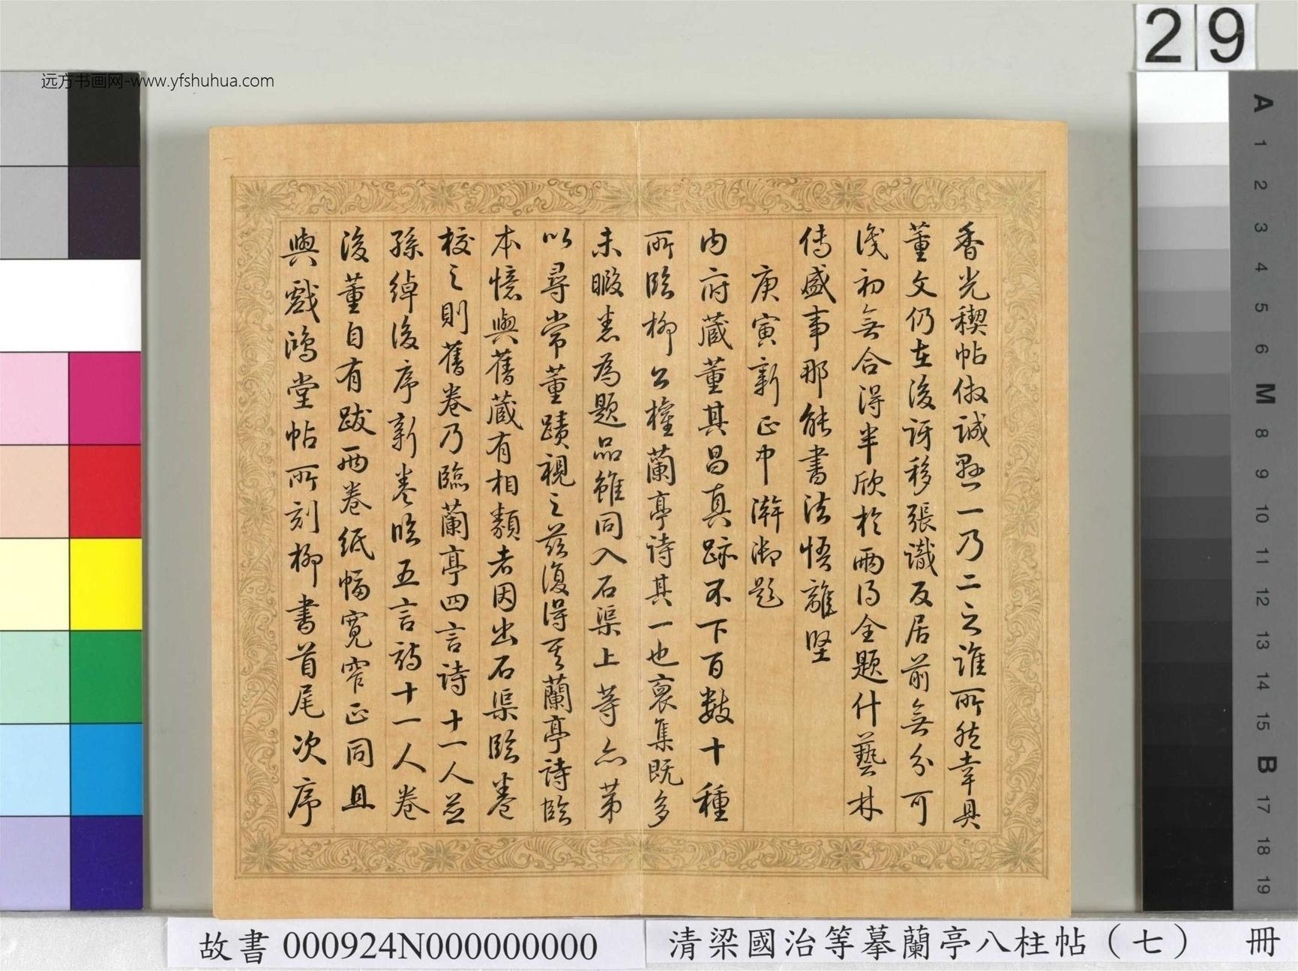 29
远方书画网-www.yfshuhua.com
香光稧帖倣誠懸一乃二之誰所然幸具
董文仍在後訝移張識反居前無分可
淺初無合得半欣於兩得全題什藝林
傳盛事那能書法悟離堅
庚寅新正中澣御題
内府藏董其昌真跡不下百數十種
所臨柳公權蘭亭詩其一也裒集既多
未暇悉為題品雖同入石渠上等亦第
以尋常董蹟視之茲復得其蘭亭詩臨
本憶與舊藏有相類者因出石渠臨卷
校之則舊卷乃臨蘭亭四言詩十一人並
孫綽後序新卷臨五言詩十一人卷
後董自有跋兩卷紙幅寬窄正同且
與戲鴻堂帖所刻柳書首尾次序
A
1
2
3
4
5
6
M
8
9
10
11
12
13
14
15
B
17
18
19
故書 000924N000000000
清梁國治等摹蘭亭八柱帖（七） 冊